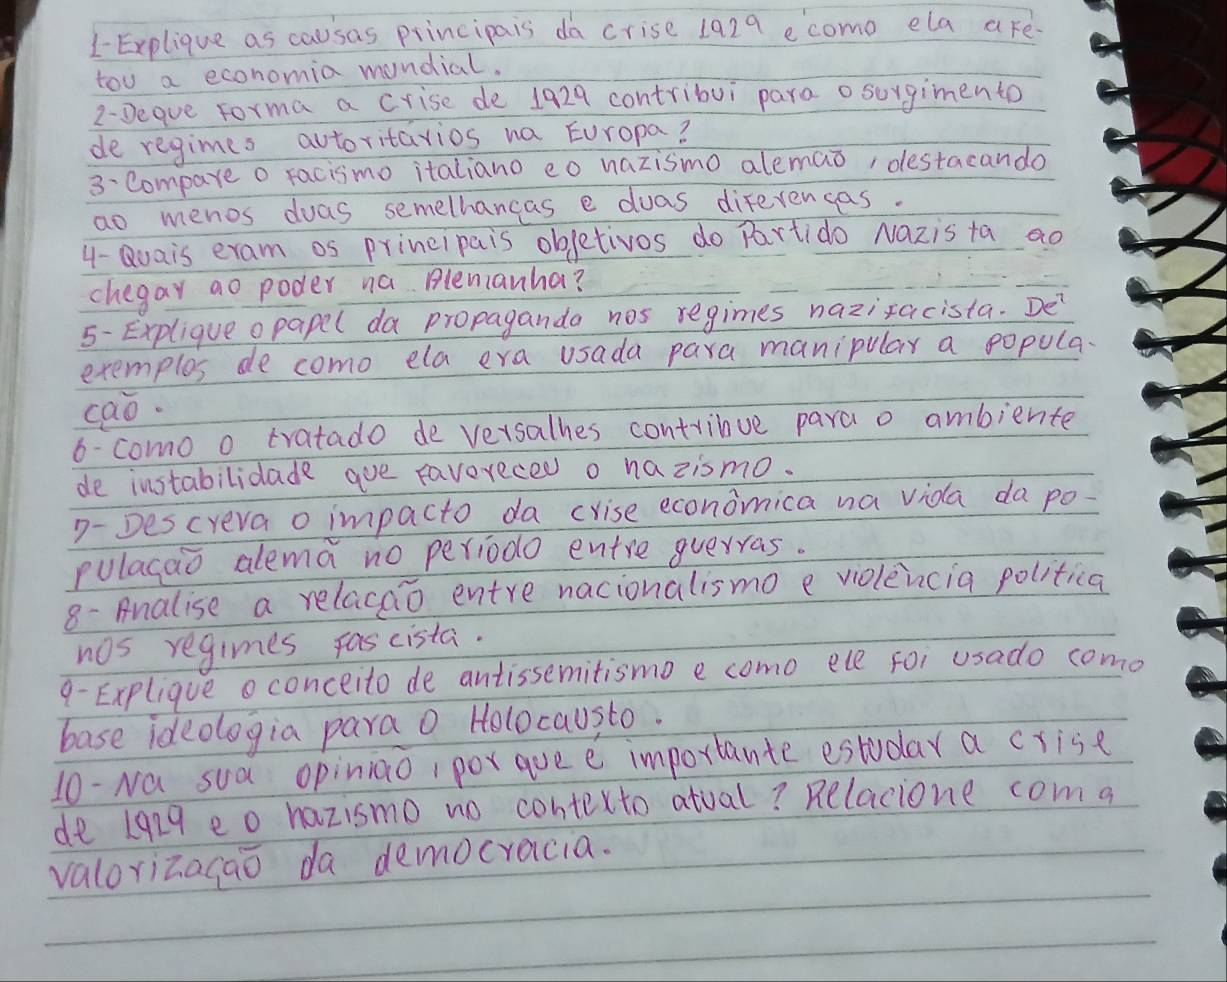 1-Explique as causas principais da crise 1929 e como ela afe-
tou a economia mundial.
2-Deque forma a crise de 1929 contribui para o surgimento
de regimes autoritários na Europa?
3-Compare o facismo italiano e o nazismo alemão, destacando
ao menos duas semelhanças e duas diferenças.
4-Quais eram os principais objetivos do Partido Nazista ao
chegar ao poder na Alemanha?
5-Explique o papel da propaganda nos regimes nazifacista. De
exemplos de como ela era usada para manipular a popula-
ção.
6-como o tratado de versalhes contribue para o ambiente
de instabilidade que favoreceu o nazismo.
7-Descreva o impacto da crise econômica na vida da po-
pulação alemã no período entre guerras.
8-Analise a relação entre nacionalismo e violência política
nos regimes fascista.
9-Explique o conceito de antissemitismo e como ele foi usado como
base ideologia para o Holocausto.
10-Na sua opinião, por que é importante estudar a crise
de 1929 e o nazismo no contexto atual? Relacione com a
valorização da democracia.